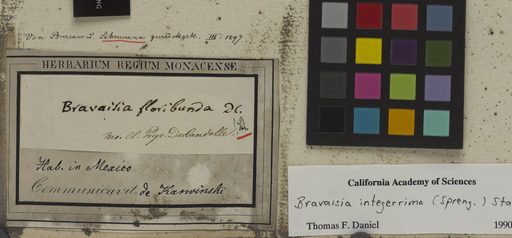 Von Bureau u. Schumann zurückgek. III. 1897
HERBARIUM REGIUM MONACENSE.
Bravaisia floribunda DC.
Hab. in Mexico
Communicavit. de Karwinski
California Academy of Sciences
Bravaisia integerrima (Spreng.) Sta
Thomas F. Daniel
1990